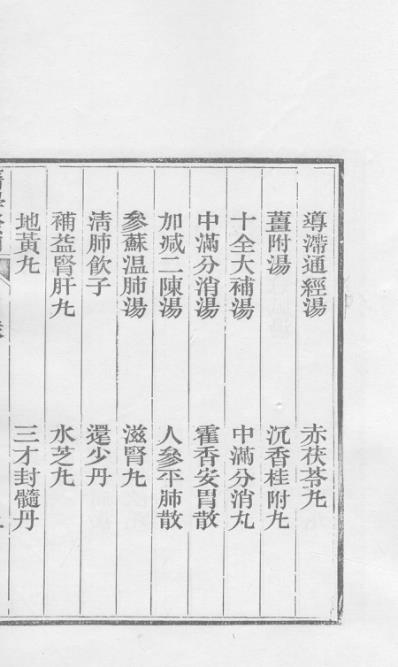 導滯通經湯　赤茯苓丸
薑附湯　沉香桂附丸
十全大補湯　中滿分消丸
中滿分消湯　霍香安胃散
加减二陳湯　人參平肺散
參蘇温肺湯　滋腎丸
淸肺飮子　還少丹
補益腎肝丸　水芝丸
地黃丸　三才封髓丹